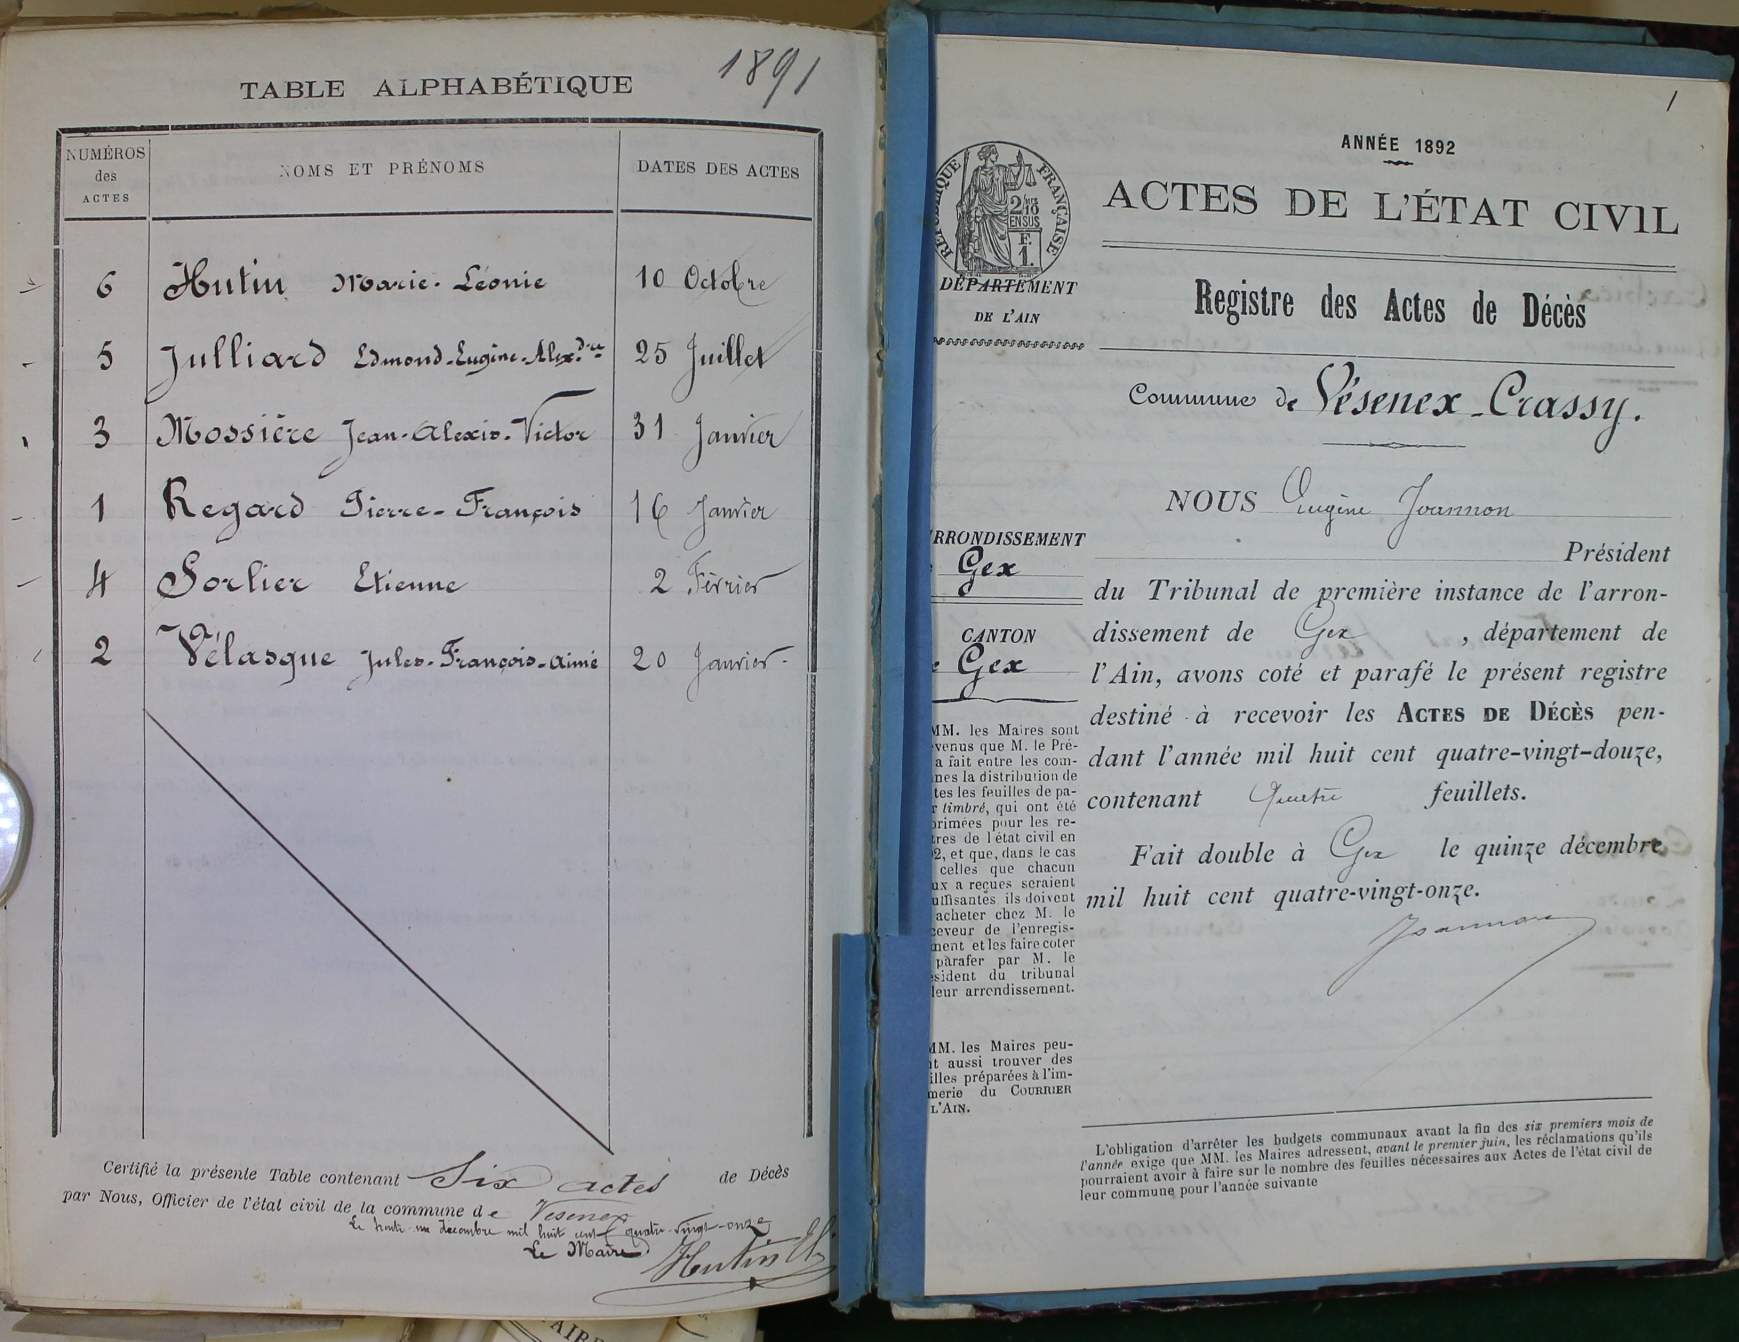 1891
TABLE ALPHABÉTIQUE
NUMÉROS
des
ACTES
NOMS ET PRÉNOMS
DATES DES ACTES
6 Hutin Marie-Léonie 10 Octobre
5 Julliard Edmond-Eugène-Alexdre 25 Juillet
3 Mossière Jean-Alexis-Victor 31 Janvier
1 Regard Pierre-François 16 Janvier
4 Sorlier Etienne 2 Février
2 Vélasque Jules-François-Aimé 20 Janvier
Certifié la présente Table contenant Six actes de Décès
par Nous, Officier de l'état civil de la commune de Vesenex
Le trente un decembre mil huit cent quatre-vingt-onze
Le Maire
Hutin
1
ANNÉE 1892
ACTES DE L'ÉTAT CIVIL
RÉPUBLIQUE FRANÇAISE
2/10
EN SUS
F.
1.
DÉPARTEMENT
DE L'AIN
Registre des Actes de Décès
Commune de Vésenex-Crassy.
NOUS Eugène Joannon
Président
du Tribunal de première instance de l'arron-
dissement de Gex, département de
l'Ain, avons coté et parafé le présent registre
destiné à recevoir les ACTES DE DÉCÈS pen-
dant l'année mil huit cent quatre-vingt-douze,
contenant Quatre feuillets.
Fait double à Gex le quinze décembre
mil huit cent quatre-vingt-onze.
Joannon
RRONDISSEMENT
Gex
CANTON
e Gex
MM. les Maires sont
venus que M. le Pré-
a fait entre les com-
nes la distribution de
tes les feuilles de pa-
r timbré, qui ont été
primées pour les re-
tres de l'état civil en
2, et que, dans le cas
celles que chacun
ux a reçues seraient
uffisantes ils doivent
acheter chez M. le
ceveur de l'enregis-
ment et les faire coter
parafer par M. le
sident du tribunal
leur arrondissement.
MM. les Maires peu-
nt aussi trouver des
illes préparées à l'im-
merie du COURRIER
L'AIN.
L'obligation d'arrêter les budgets communaux avant la fin des six premiers mois de
l'année exige que MM. les Maires adressent, avant le premier juin, les réclamations qu'ils
pourraient avoir à faire sur le nombre des feuilles nécessaires aux Actes de l'état civil de
leur commune pour l'année suivante